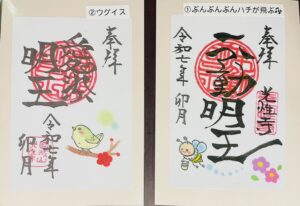 ①ぶんぶんぶんハチが飛ぶ
奉拝
不動明王
光性寺
令和七年
卯月
②ウグイス
奉拝
愛染
明王
令和七年
卯月